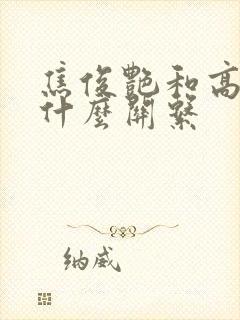 焦俊艷和高
什麼關繫
纳威